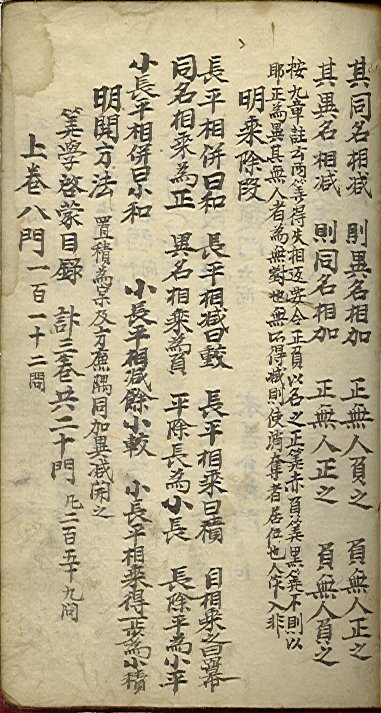 其同名相減　則異名相加　正無人負之　負無人正之
其異名相減　則同名相加　正無人正之　負無人負之
按九章註云两筭得失相返要令正負以名之正筭赤負筭黑筭不則以
耶正為異其無入者為無對也無所得減則使消奪者居位也人作入非
明乘除段
長平相併曰和　長平相減曰較　長平相乘曰積　自相乘之曰冪
同名相乘為正　異名相乘為負　平除長為小長　長除平為小平
小長平相併曰小和　小長平相減餘小較　小長平相乘得一步為小積
明開方法　置積為実及方廉隅同加異減開之
筭學啓蒙目録　計三卷共二十門　凢二百五十九問
上卷八門一百一十二問